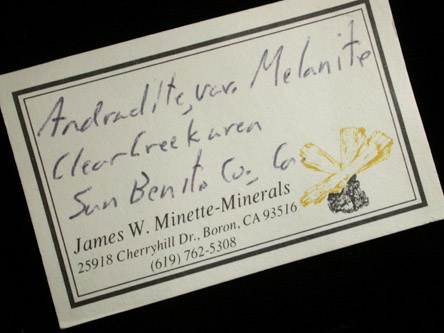 Andradite, var. Melanite
Clear Creek area
San Benito Co., Ca
James W. Minette-Minerals
25918 Cherryhill Dr., Boron, CA 93516
(619) 762-5308